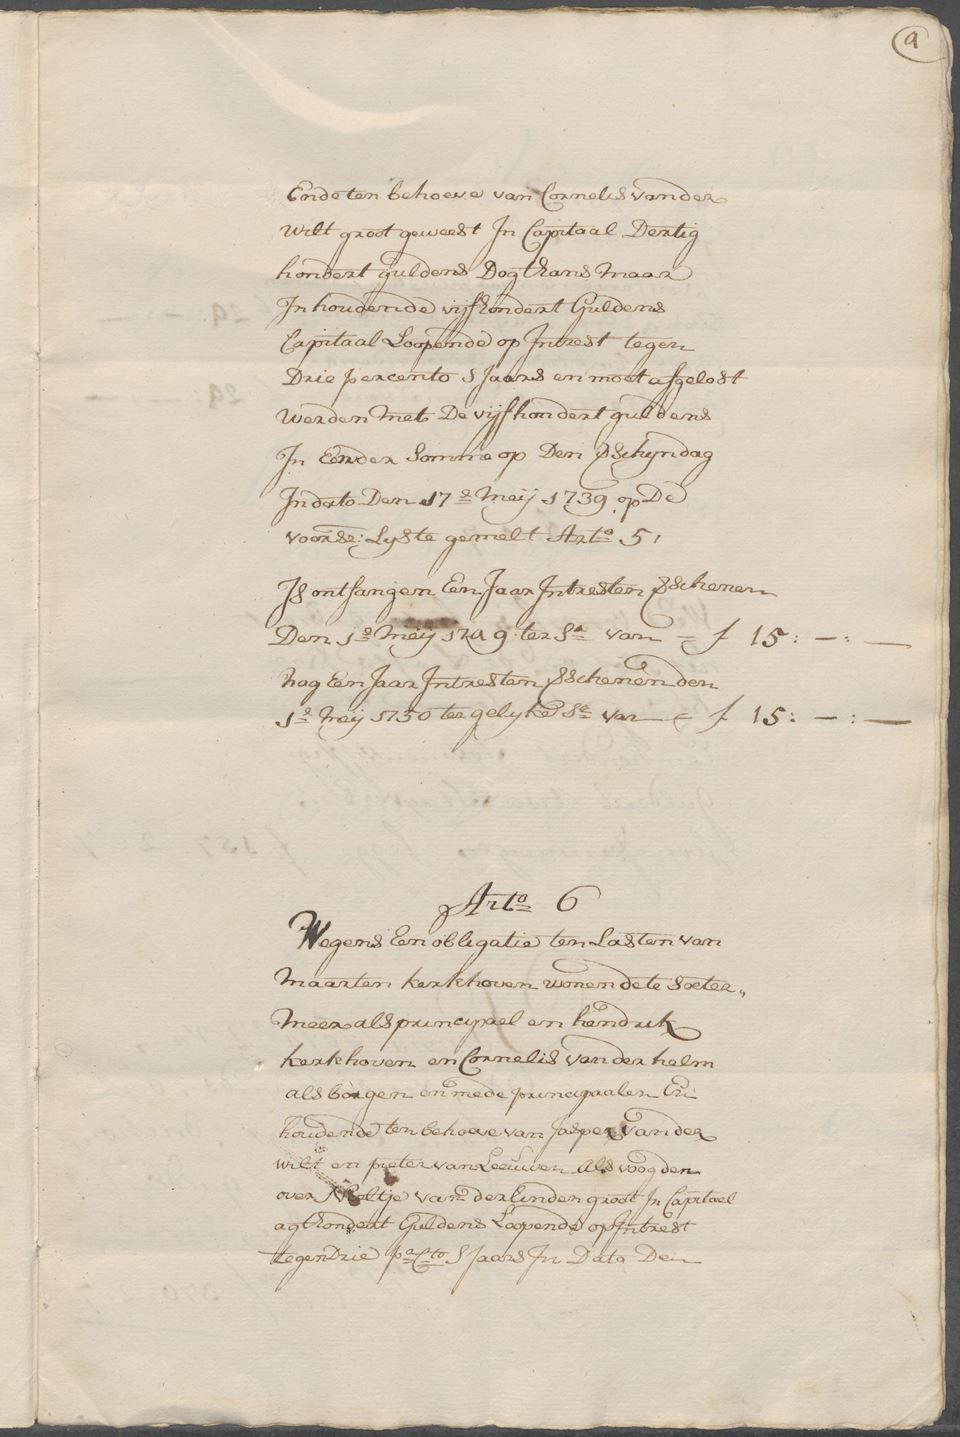 9
Ende ten behoeve van Cornelis vander
wilt groot geweest In Capitaal Dertig
hondert guldens Dog thans maar
In houdende vijfhondert Guldens
Capitaal Loopende op Intrest tegen
Drie percento S Jaars en moet afgelost
werden met De vijfhondert guldens
In Eender Somme op Den schyndag
In dato Den 17e Meij 1739 op De
voorse: Lyste gemelt Arto 5,
Is ontfangen Een Jaar Intresten schenen
Den 1e Meij 1749 ter Sa van = f 15: — : —
nog Een Jaar Intresten schenen den
1e Meij 1750 ter gelyke Se van = f 15: — : —
Arto 6
Wegens Een obligatie ten Lasten van
Maarten kerkhoven wonende te Soeter„
meer als principael en hendrik
kerkhoven en Cornelis vander helm
als borgen en mede principaalen In
houdende ten behoeve van Jasper vander
wilt en pieter van Leeuwen als voogden
over Neeltje van der Einden groot In Capitael
agthondert Guldens Loopende op Intrest
tegen Drie pr Cto S Jaars In Dato Den